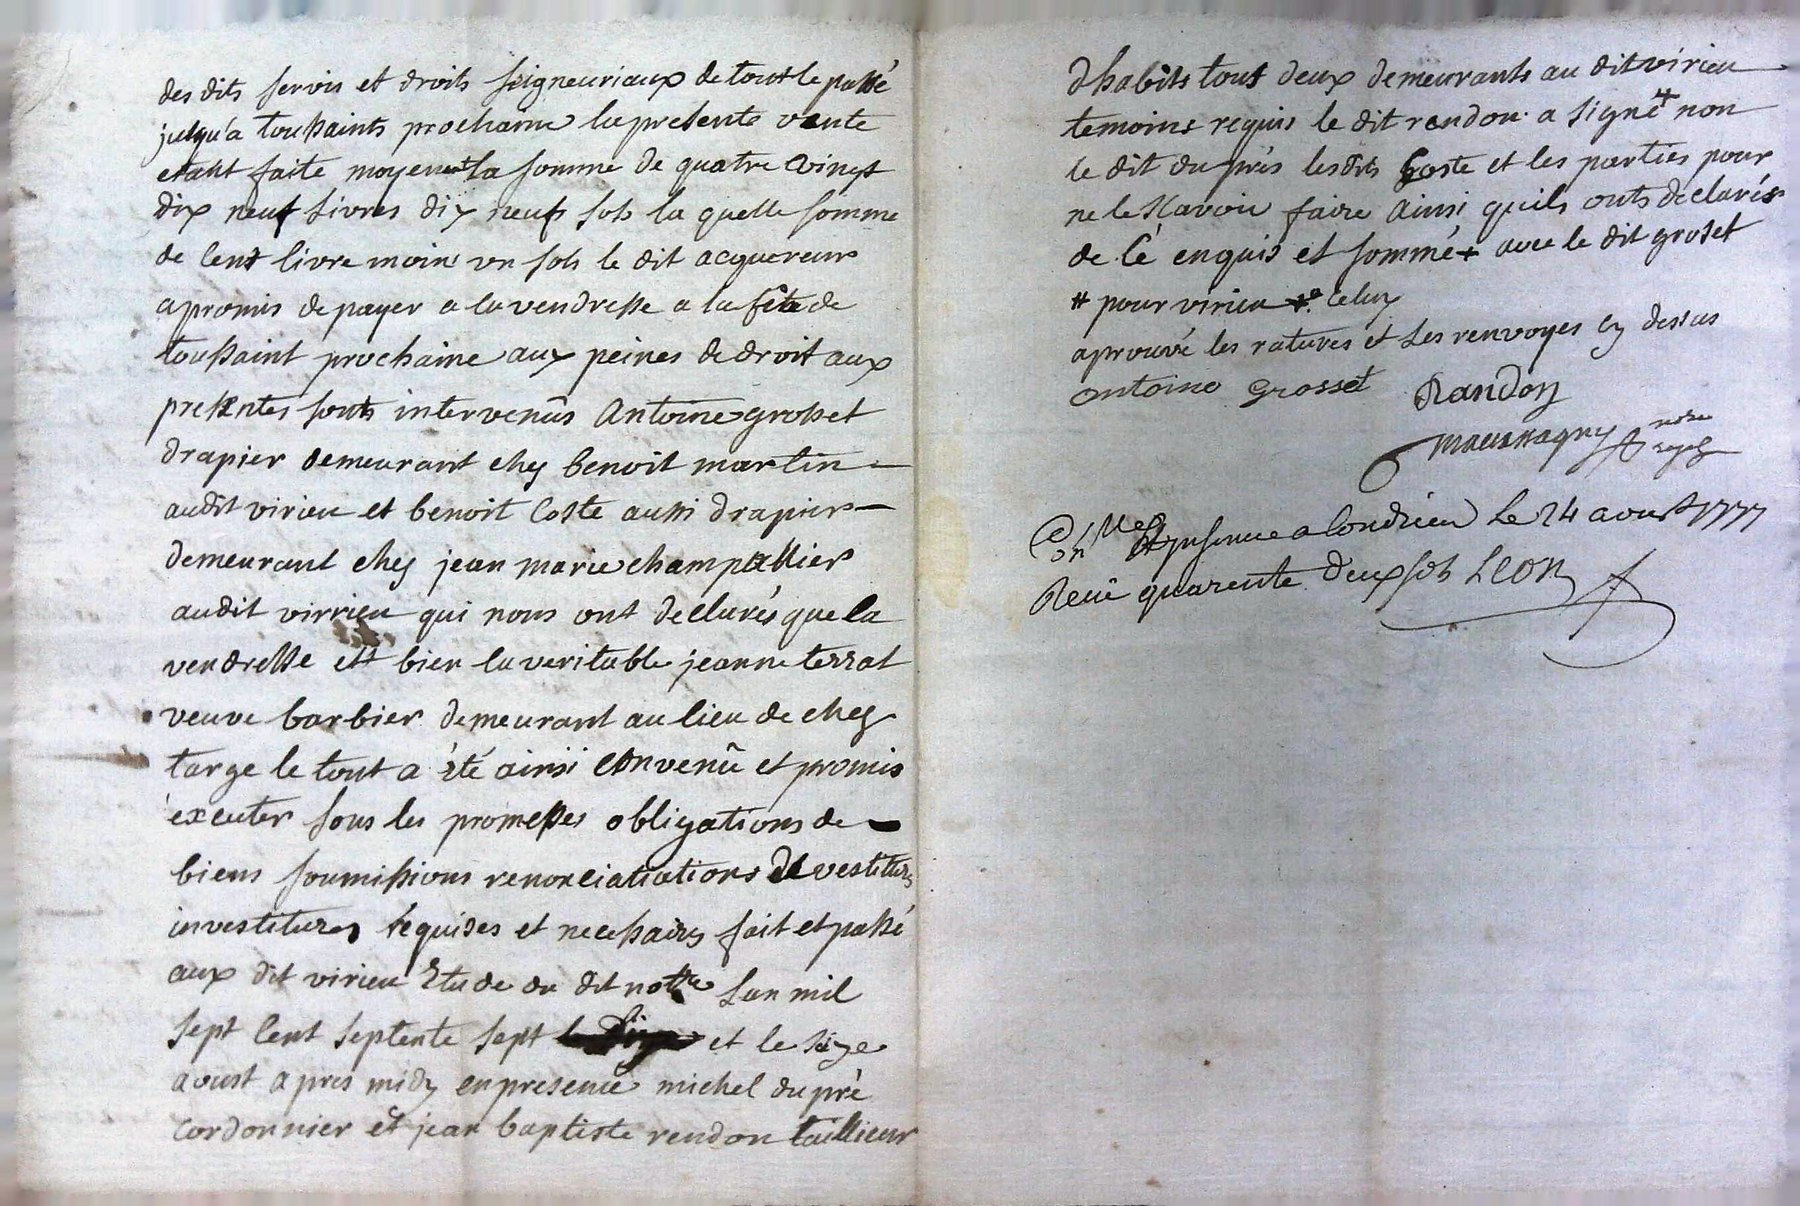 des dits servis et droits seigneuriaux de tout le passé
jusqu'a toussaints prochaine la presente vente
etant faite moyenent la somme de quatre vingt
dix neuf livres dix neuf sols la quelle somme
de cent livre moins un sols le dit acquereur
a promis de payer a la vendresse a la fête de
toussaint prochaine aux peines de droit aux
presentes sonts intervenûs Antoine grosset
drapier demeurant chez benoit martin
audit virieu et benoit Coste aussi drapier
demeurant chez jean marie champallier
audit virrieu qui nous ont declarés que la
vendresse est bien la veritable jeanne terrat
veuve barbier demeurant au lieu de chez
targe le tout a été ainsi convenû et promis
executer sous les promesses obligations de
biens soumissions renonciatiations devestitures
investitures requises et necessaires fait et passé
aux dit virieu Etude du dit notre lan mil
sept cent septente sept et le seize
avoust apres midy en presence michel dupré
cordonnier et jean baptiste rendon taillieur
dhabits tous deux demeurants au dit virieu
temoins requis le dit rendon a signé # non
le dit duprés les dits Coste et les parties pour
ne le sçavoir faire ainsi quils onts declarés
de cé enquis et sommé + avec le dit groset
# pour virieu celuy
aprouvé les ratures et les renvoyes cy dessus
antoine Grosset Randon
notre
royal
Conlle et a Condrieu le 24 aoust 1777
Receu quarente deux sols Leon